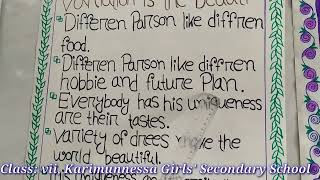 Variation is the beauti
Differen Parson like diffren
food.
Differen Parson like diffren
hobbie and future Plan.
Everybody has his uniqueness
are their tastes.
variety of drees make the
world beautiful.
Class: vii, Karimunnessa Girls' Secondary School
uniqueness